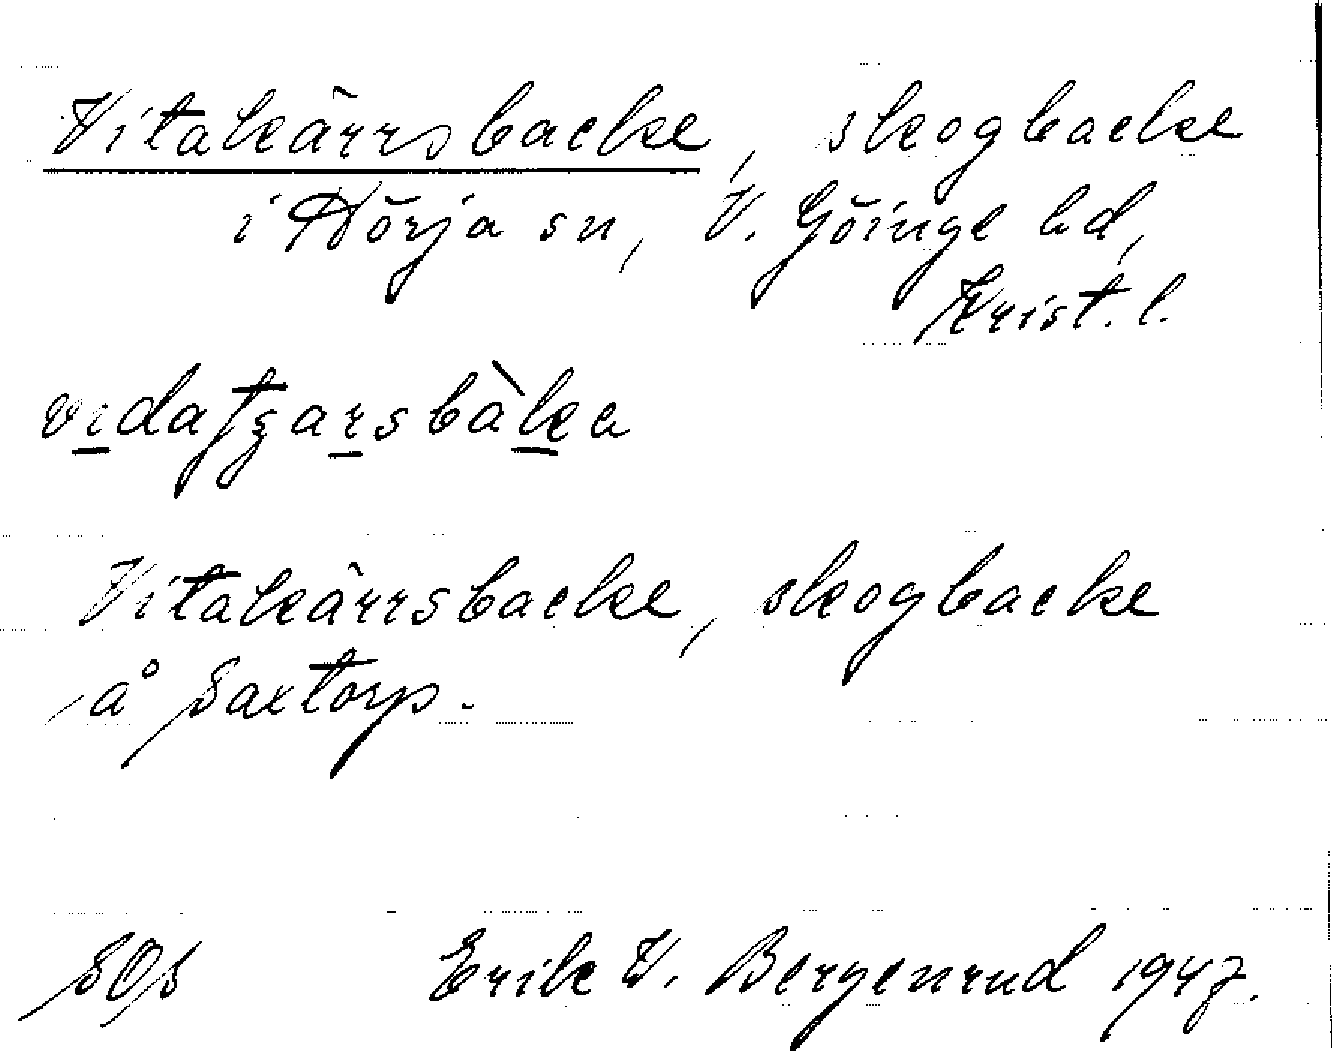 Vitakärrsbacke, skogbacke
i Hörja sn, V. Göinge hd,
Krist. l.
Vitakärrsbacke, skogbacke
å Saxtorp.
SOS Erik V. Bergenrud 1947.